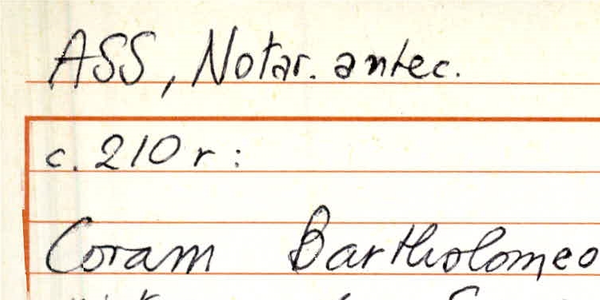 ASS, Notar. antec.
c. 210 r:
Coram Bartholomeo